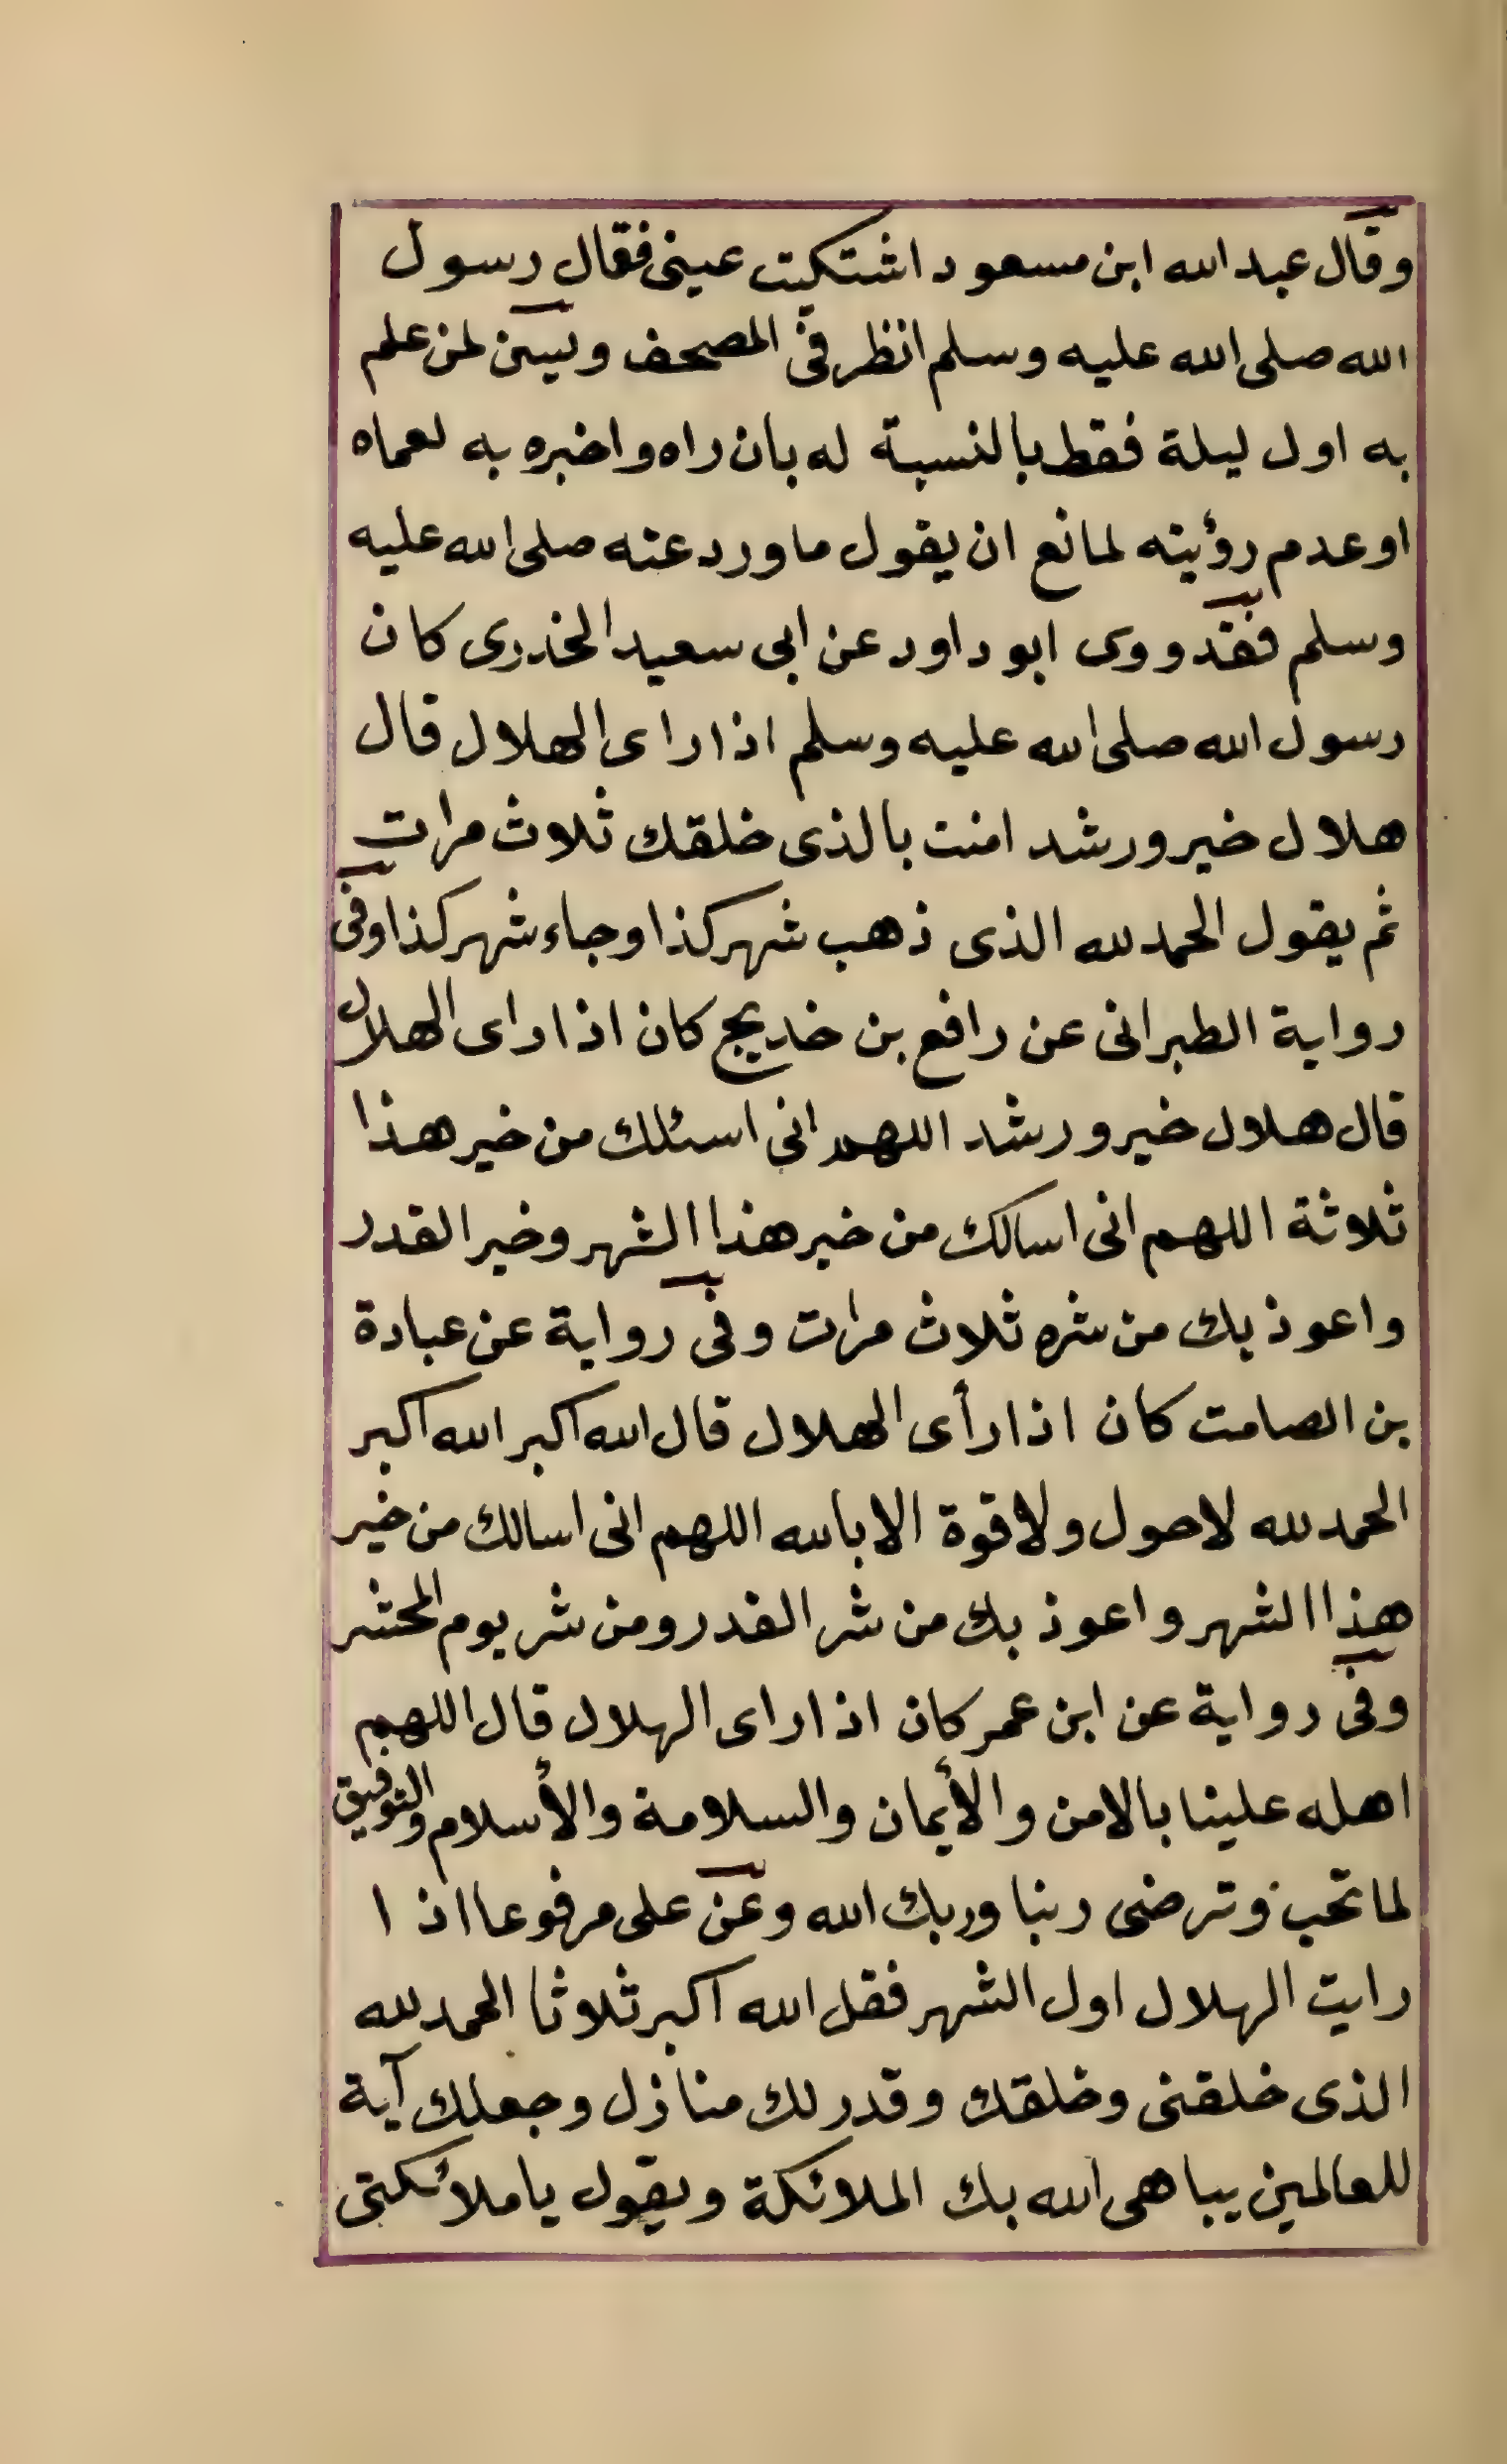 وقال عبد الله ابن مسعود اشتكيت عينى فقال رسول
الله صلى الله عليه وسلم انظر فى المصحف ويسن لمن علم
به اول ليلة فقط بالنسبة له بان راه واخبره به لعماه
او عدم رؤيته لمانع ان يقول ما ورد عنه صلى الله عليه
وسلم فقد ووى ابو داود عن ابى سعيد الخدرى كان
رسول الله صلى الله عليه وسلم اذا راى الهلال قال
هلال خير ورشد امنت بالذى خلقك ثلاث مرات
ثم يقول الحمد لله الذى ذهب شهر كذا وجاء شهر كذا وفى
رواية الطبرانى عن رافع بن خديج كان اذا راى الهلال
قال هلال خير ورشد اللهم انى اسئلك من خير هذا
ثلاثة اللهم انى اسالك من خير هذا الشهر وخير القدر
واعوذ بك من شره ثلاث مرات وفى رواية عن عبادة
بن الصامت كان اذا رأى الهلال قال الله اكبر الله اكبر
الحمد لله لا حول ولا قوة الا بالله اللهم انى اسالك من خير
هذا الشهر واعوذ بك من شر القدر ومن شر يوم المحشر
وفى رواية عن ابن عمر كان اذا راى الهلال قال اللهم
اهله علينا بالامن والأيمان والسلامة والأسلام والتوفيق
لما تحب وترضى ربنا وربك الله وعن على مرفوعا اذا
رايت الهلال اول الشهر فقل الله اكبر ثلاثا الحمد لله
الذى خلقنى وخلقك وقدر لك منازل وجعلك آية
للعالمين يباهى الله بك الملائكة ويقول يا ملائكتى